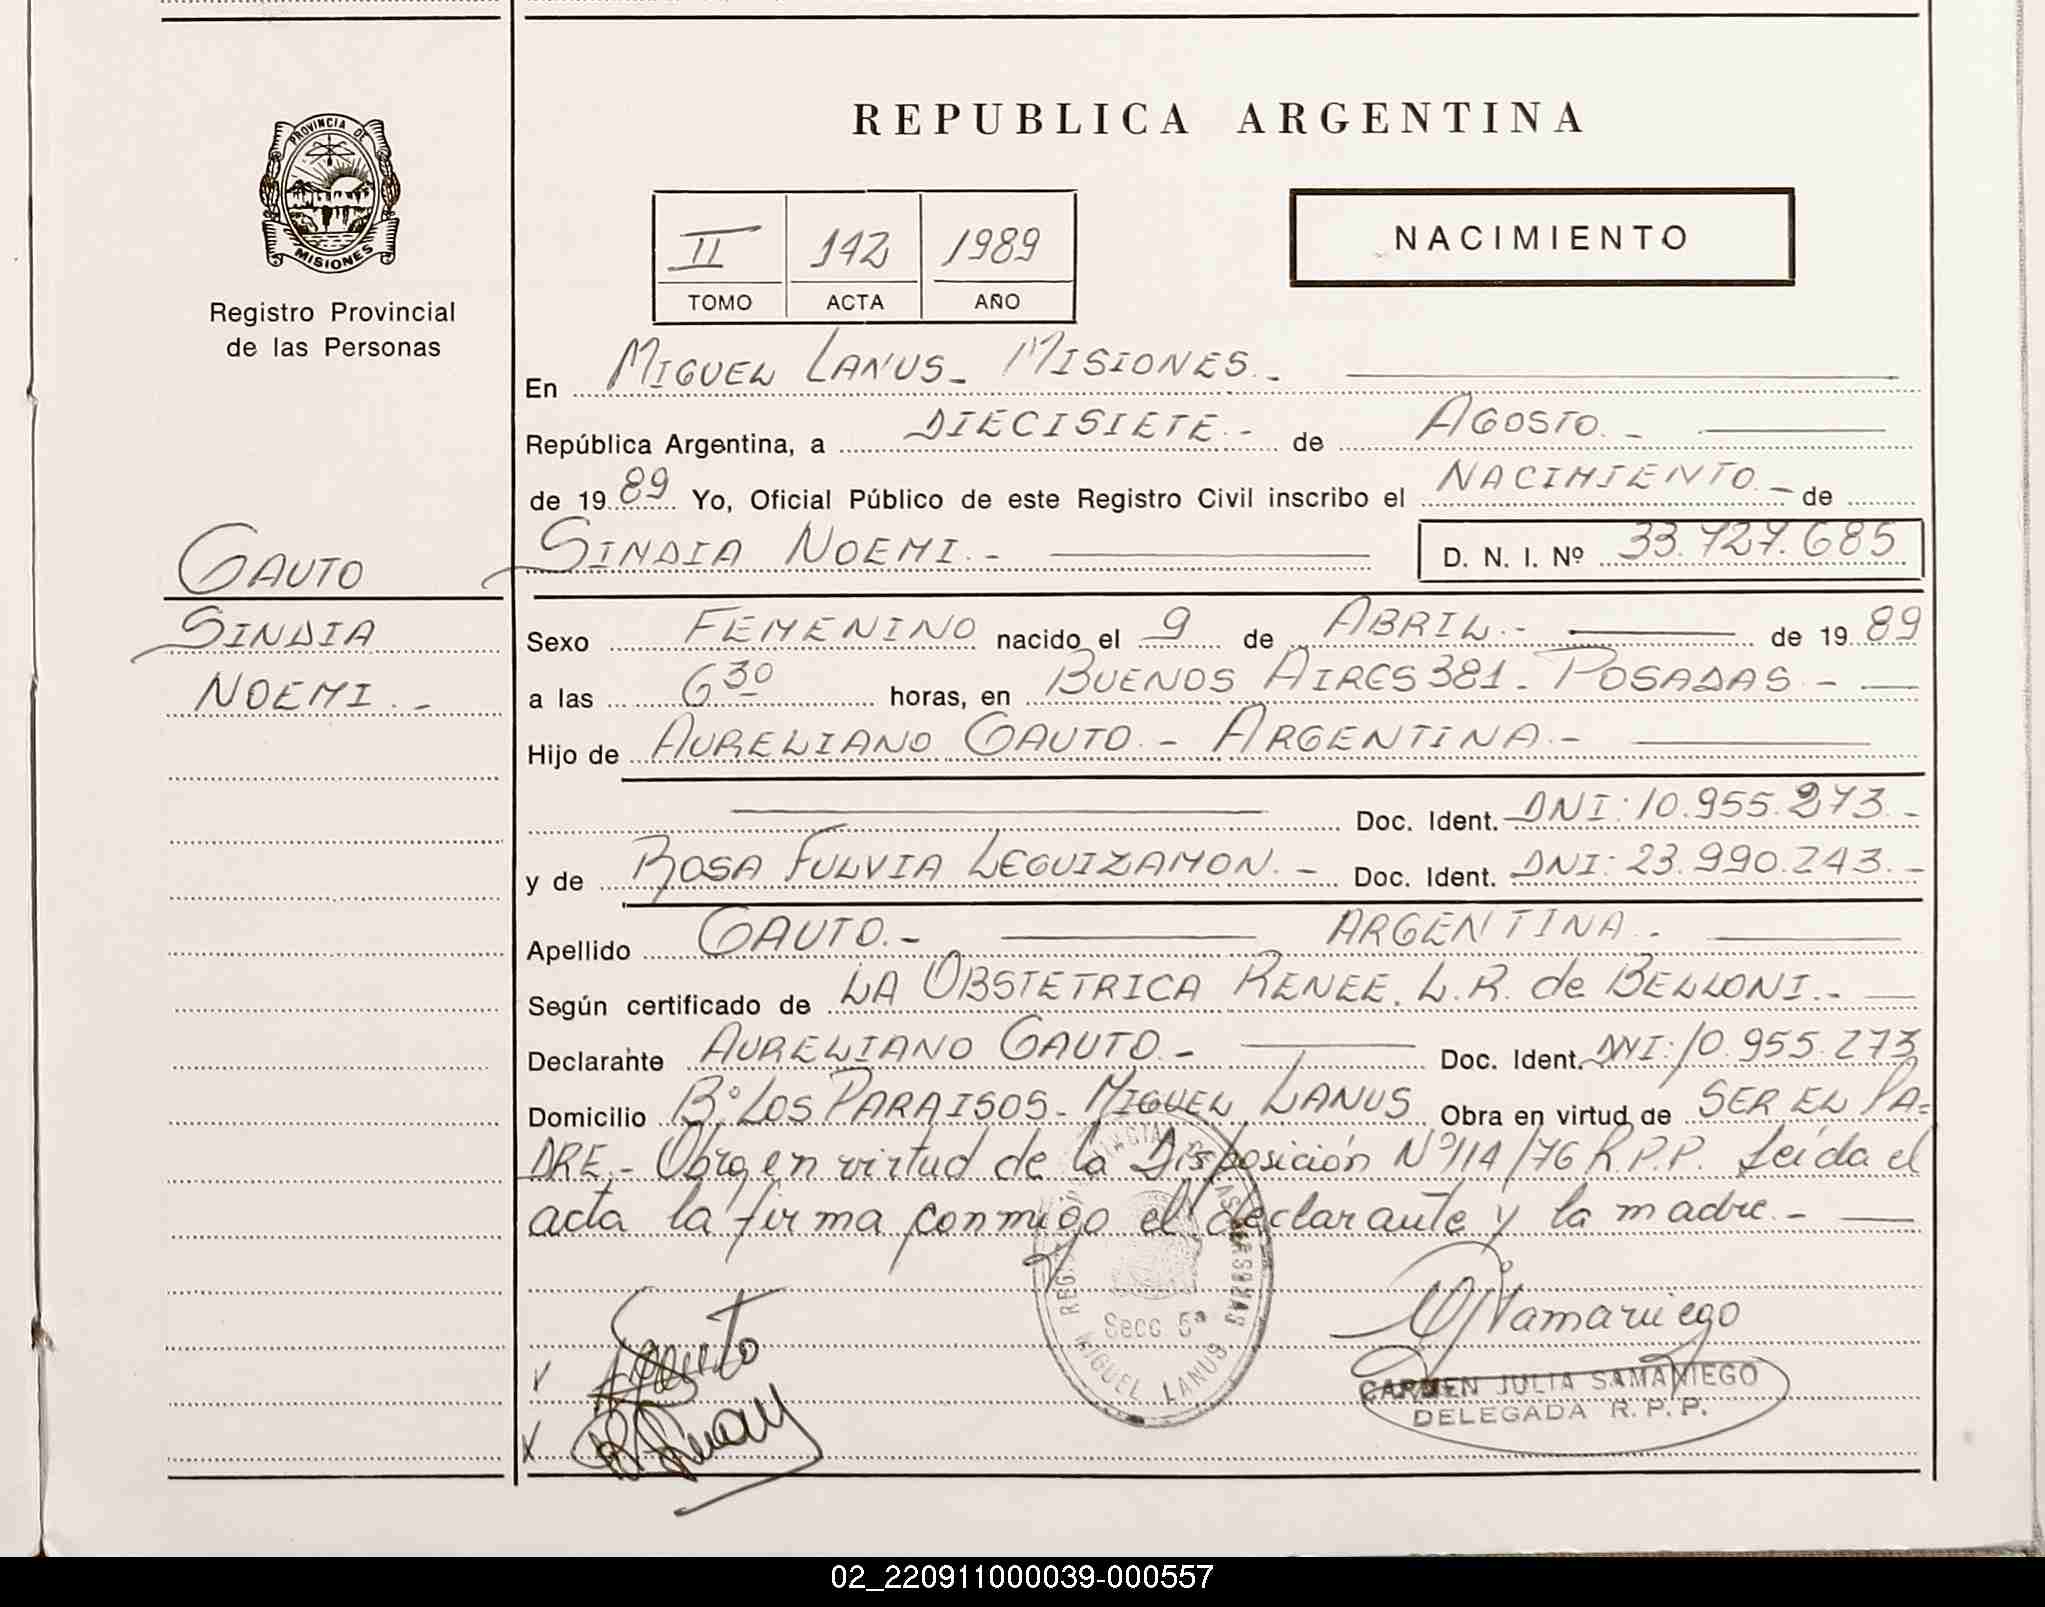 REPUBLICA ARGENTINA
PROVINCIA DE
MISIONES
Registro Provincial
de las Personas
II 142 1989
TOMO ACTA AÑO
NACIMIENTO
En MIGUEL LANUS_ MISIONES._
República Argentina, a DIECISIETE.- de AGOSTO._
de 1989 Yo, Oficial Público de este Registro Civil inscribo el NACIMIENTO._ de
SINDIA NOEMI.- D. N. I. Nº 33.727.685
GAUTO
SINDIA
NOEMI._
Sexo FEMENINO nacido el 9 de ABRIL.- de 1989
a las 6 30 horas, en BUENOS AIRES 381_ POSADAS-
Hijo de AURELIANO GAUTO.- ARGENTINA.-
Doc. Ident. DNI: 10.955.273.-
y de ROSA FULVIA LEGUIZAMON.- Doc. Ident. DNI: 23.990.243.-
Apellido GAUTO.- ARGENTINA.
Según certificado de LA OBSTETRICA RENEE. L.R. de BELLONI.-
Declarante AURELIANO GAUTO.- Doc. Ident. DNI: 10.955.273
Domicilio Bº LOS PARAISOS_ MIGUEL LANUS Obra en virtud de SER EL PA=
DRE._ Obra en virtud de la Disposición Nº 114/76 R.P.P. Leída el
acta la firma conmigo el declarante y la madre.-
Secc. 5ª
MIGUEL LANUS
CARMEN JULIA SAMANIEGO
DELEGADA R. P. P.
02_220911000039-000557